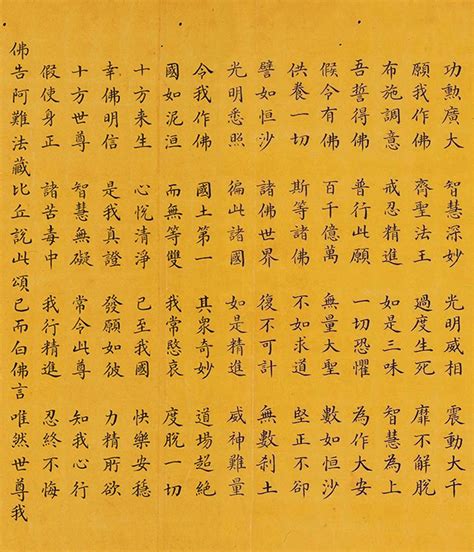 功勲廣大 智慧深妙 光明威相 震動大千
願我作佛 齊聖法王 過度生死 靡不解脫
布施調意 戒忍精進 如是三昧 智慧為上
吾誓得佛 普行此願 一切恐懼 為作大安
假令有佛 百千億萬 無量大聖 數如恒沙
供養一切 斯等諸佛 不如求道 堅正不却
譬如恒沙 諸佛世界 復不可計 無數刹土
光明悉照 徧此諸國 如是精進 威神難量
令我作佛 國土第一 其衆奇妙 道場超絕
國如泥洹 而無等雙 我常愍哀 度脫一切
十方来生 心悅清淨 已至我國 快樂安穩
幸佛明信 是我真證 發願如彼 力精所欲
十方世尊 智慧無礙 常令此尊 知我心行
假使身正 諸苦毒中 我行精進 忍終不悔
佛告阿難法藏比丘說此頌已而白佛言唯然世尊我